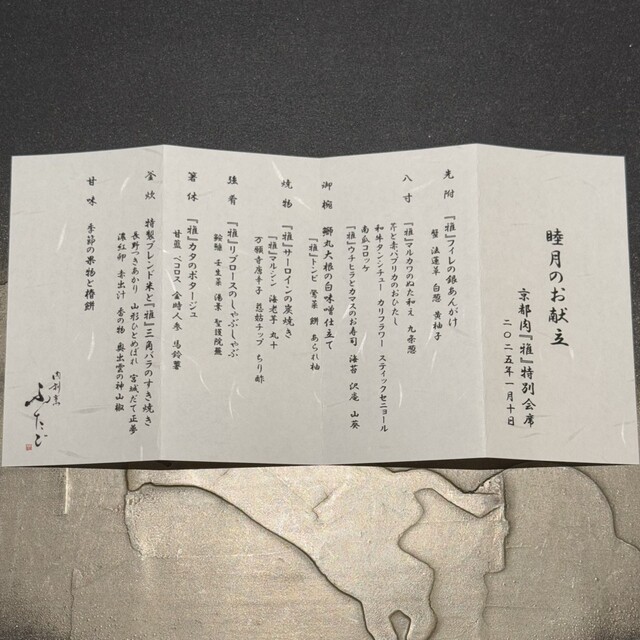 睦月のお献立
京都肉『雅』特別会席
二〇二五年一月十日
先附 『雅』フィレの銀あんがけ
蟹 法蓮草 白葱 黄柚子
八寸 『雅』マルカワのぬた和え 九条葱
芹と赤パプリカのおひたし
和牛タンシチュー カリフラワー スティックセニョール
南瓜コロッケ
『雅』ウチヒラとカマスのお寿司 海苔 沢庵 山葵
御椀 聊丸大根の白味噌仕立て
『雅』トンビ 鶯菜 餅 あられ柚
焼物 『雅』サーロインの炭焼き
『雅』マルシン 海老芋 丸十
万願寺唐辛子 慈姑チップ ちり酢
強肴 『雅』リブロースのしゃぶしゃぶ
壬生菜 湯葉 聖護院蕪
箸休 『雅』カタのポタージュ
甘藍 ペコロス 金時人参 馬鈴薯
釜炊 特製ブレンド米と『雅』三角バラのすき焼き
長野つきあかり 山形ひとめぼれ 宮城だて正夢
濃紅卵 赤出汁 香の物 奥出雲の神山椒
甘味 季節の果物と椿餅
肉割烹
ふたご